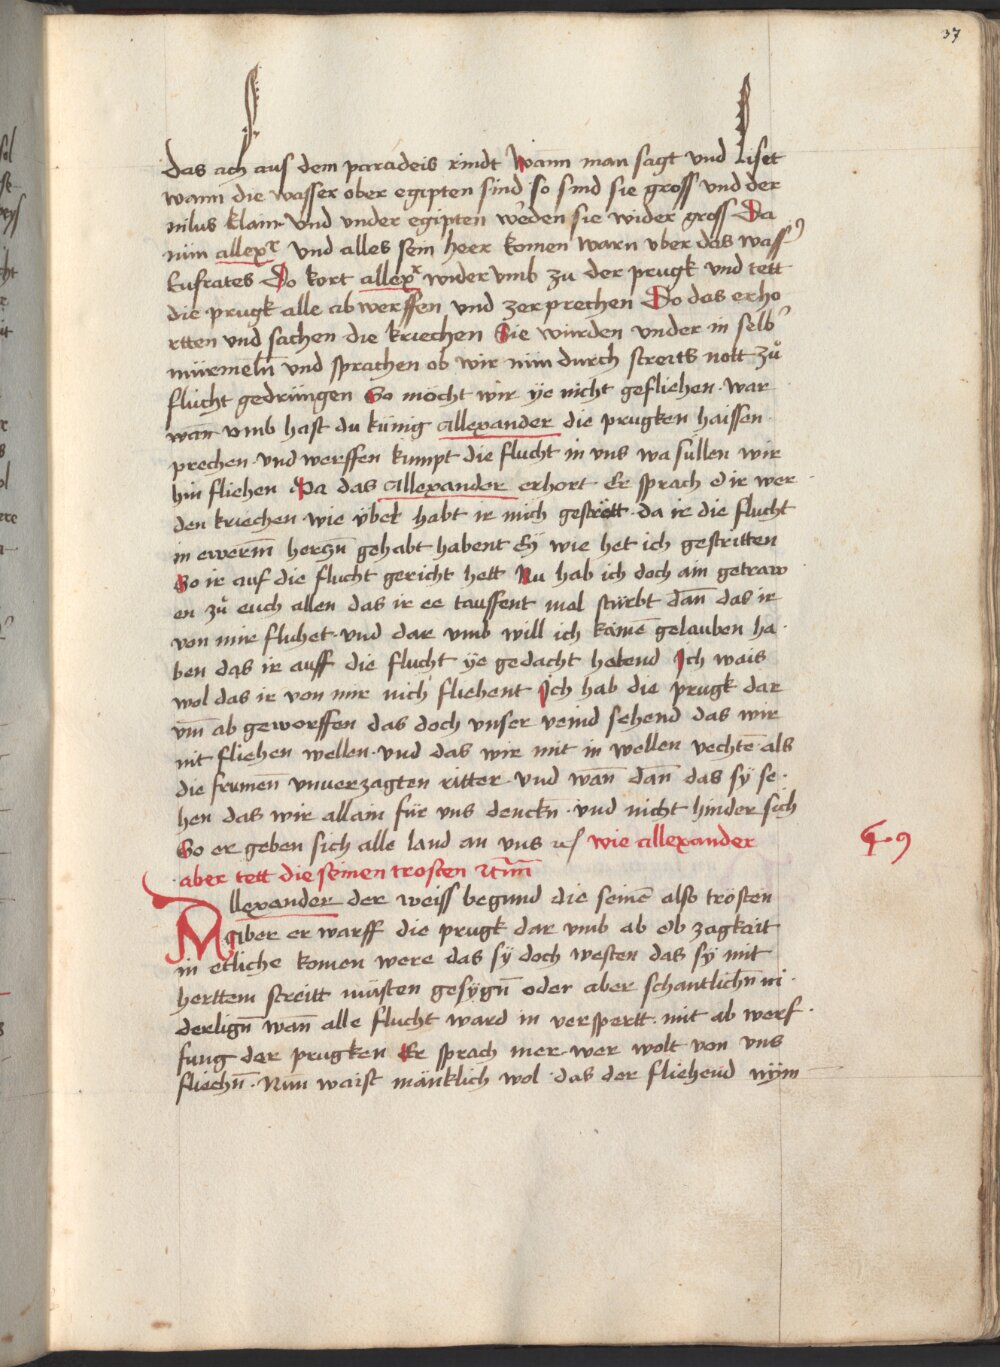 37
das ach aus dem paradeis rindt wann man sagt und liset
wann die wasser ober egipten sind so sind sie gross und der
nilus klain und under egipten weden sie wider gross Da
nün allexr und alles sein heer komen warn vber das wass
Eufrates Do kort allexr wider vmb zu der prugk und tett
die prugk alle ab werffen und zerprechen Do das erho
rtten und sachen die kriechen Sie wurden vnder in selb
mürmeln und sprachen ob wir nün durch streits nott zů
flücht gedrüngen So möcht wir ÿe nicht gefliehen war
wan vmb hast du künig Allexander die prugken haissen
prechen und werffen kumpt die flucht in vns wa süllen wir
hin fliehen Da das Allexander erhort Er sprach O ir wer
den kriechen wie übel habt ir mich getrött da ir die flucht
in ewerm herczn gehabt habent Eÿ wie het ich gestritten
So ir auf die flucht gericht hett Nu hab ich doch ain getraw
en zů euch allen das ir ee taussent mal stürbt dan das ir
von mir fluhet und dar vmb will ich kainē gelauben ha
ben das ir auff die flucht ÿe gedacht habend Ich wais
wol das ir von mir nich fliehent Ich hab die prugk dar
vm ab geworffen das doch vnser veind sehend das wir
nit fliehen wellen und das wir mit in wellen vechtē als
die frumen vnuerzagten ritter und wan dan das sÿ se
hen das wir allain für vns denckn und nicht hinder sich
So er geben sich alle land an vns wie allexander
aber tett die seinen trosten
Allexander der weiss begund die seinē also trösten
Aber er warff die prugk dar vmb ab ob zagkait
in etliche komen were das sÿ doch westen das sÿ mit
herttem streitt müsten gesÿgn oder aber schantlichn ni
derlign wan alle flucht ward in verspertt mit ab werf
fung der prugken Er sprach mer wer wolt von vns
fliechn Nün waist mänklich wol das der fliehend nÿm